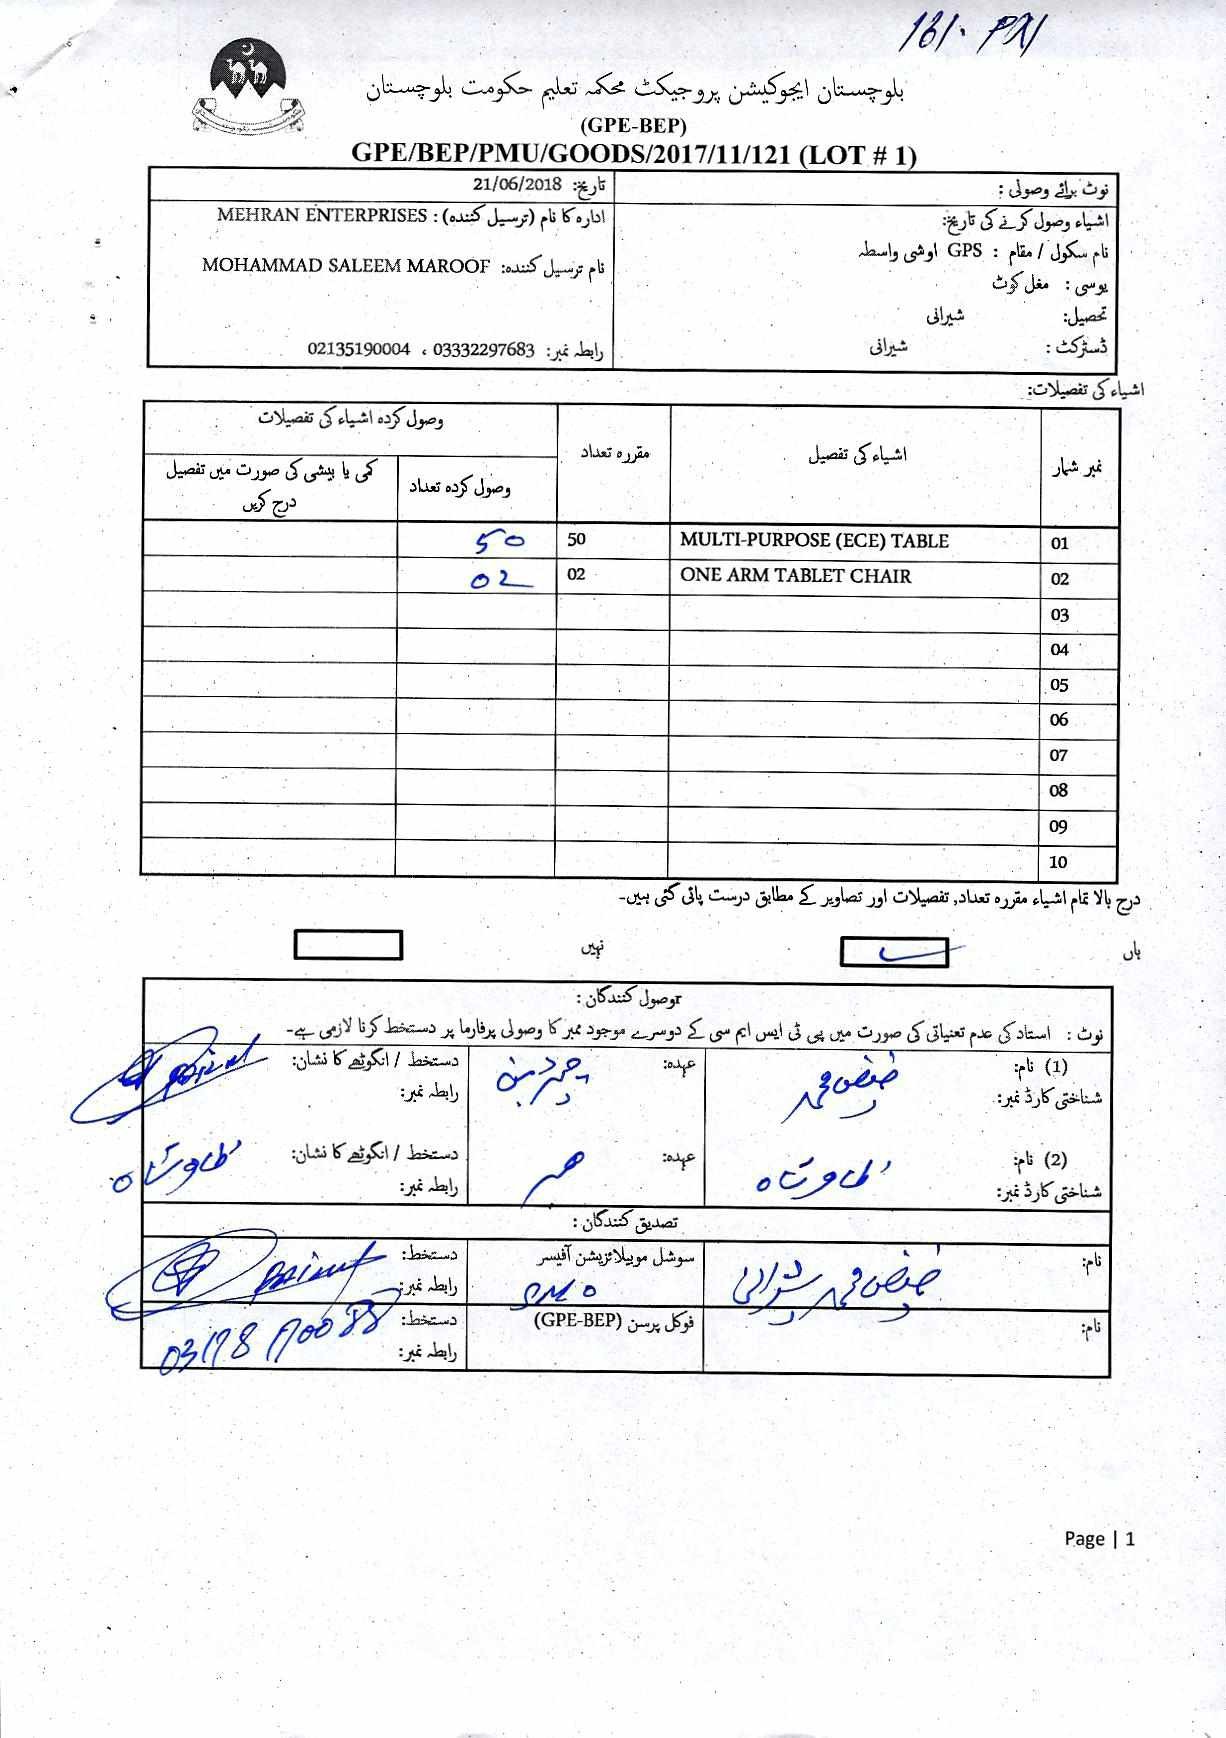 بلوچستان ایجوکیشن پروجیکٹ محکمہ تعلیم حکومت بلوچستان
(GPE-BEP)
GPE/BEP/PMU/GOODS/2017/11/121 (LOT # 1)
نوٹ برائے وصولی :
تاریخ: 21/06/2018
اشیاء وصول کرنے کی تاریخ:
ادارہ کا نام (ترسیل کنندہ) : MEHRAN ENTERPRISES
نام سکول / مقام : GPS اوشی واسطہ
نام ترسیل کنندہ: MOHAMMAD SALEEM MAROOF
یوسی : مغل کوٹ
تحصیل: شیرانی
ڈسٹرکٹ : شیرانی
رابطہ نمبر: 03332297683 ، 02135190004
اشیاء کی تفصیلات:
نمبر شمار اشیاء کی تفصیل مقررہ تعداد وصول کردہ اشیاء کی تفصیلات
وصول کردہ تعداد کمی یا بیشی کی صورت میں تفصیل درج کریں
01 MULTI-PURPOSE (ECE) TABLE 50 50
02 ONE ARM TABLET CHAIR 02 02
03
04
05
06
07
08
09
10
درج بالا تمام اشیاء مقررہ تعداد, تفصیلات اور تصاویر کے مطابق درست پائی گئی ہیں۔
ہاں نہیں
وصول کنندگان :
نوٹ : استاد کی عدم تعنیاتی کی صورت میں پی ٹی ایس ایم سی کے دوسرے موجود ممبر کا وصولی پرفارما پر دستخط کرنا لازمی ہے۔
(1) نام: عہدہ: دستخط / انگوٹھے کا نشان:
شناختی کارڈ نمبر: رابطہ نمبر:
(2) نام: عہدہ: ممبر دستخط / انگوٹھے کا نشان:
شناختی کارڈ نمبر: رابطہ نمبر:
تصدیق کنندگان :
نام: سوشل موبیلائزیشن آفیسر دستخط:
رابطہ نمبر:
نام: فوکل پرسن (GPE-BEP) دستخط:
رابطہ نمبر:
Page | 1